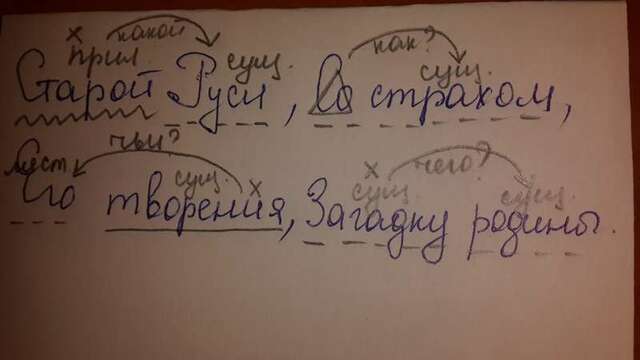 х какой
прил. сущ. как? сущ.
Старой Руси, Со страхом,
мест чьи? сущ. х х сущ. чего? сущ.
Его творения, Загадку родины.